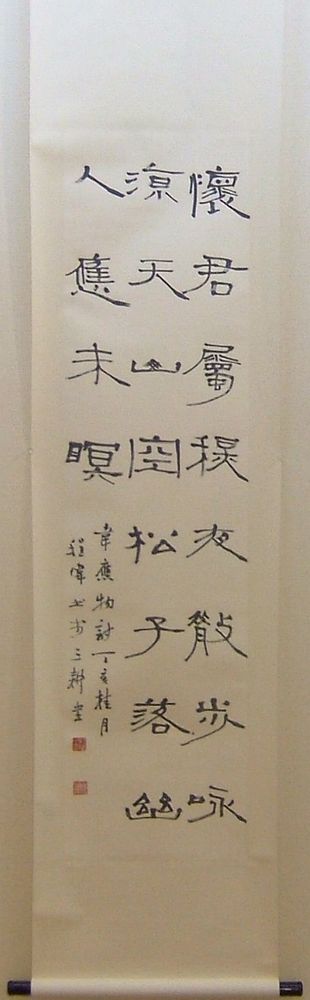 懷君屬秋夜散步咏
涼天山空松子落幽
人應未瞑
韋應物詩丁亥桂月
三耕堂